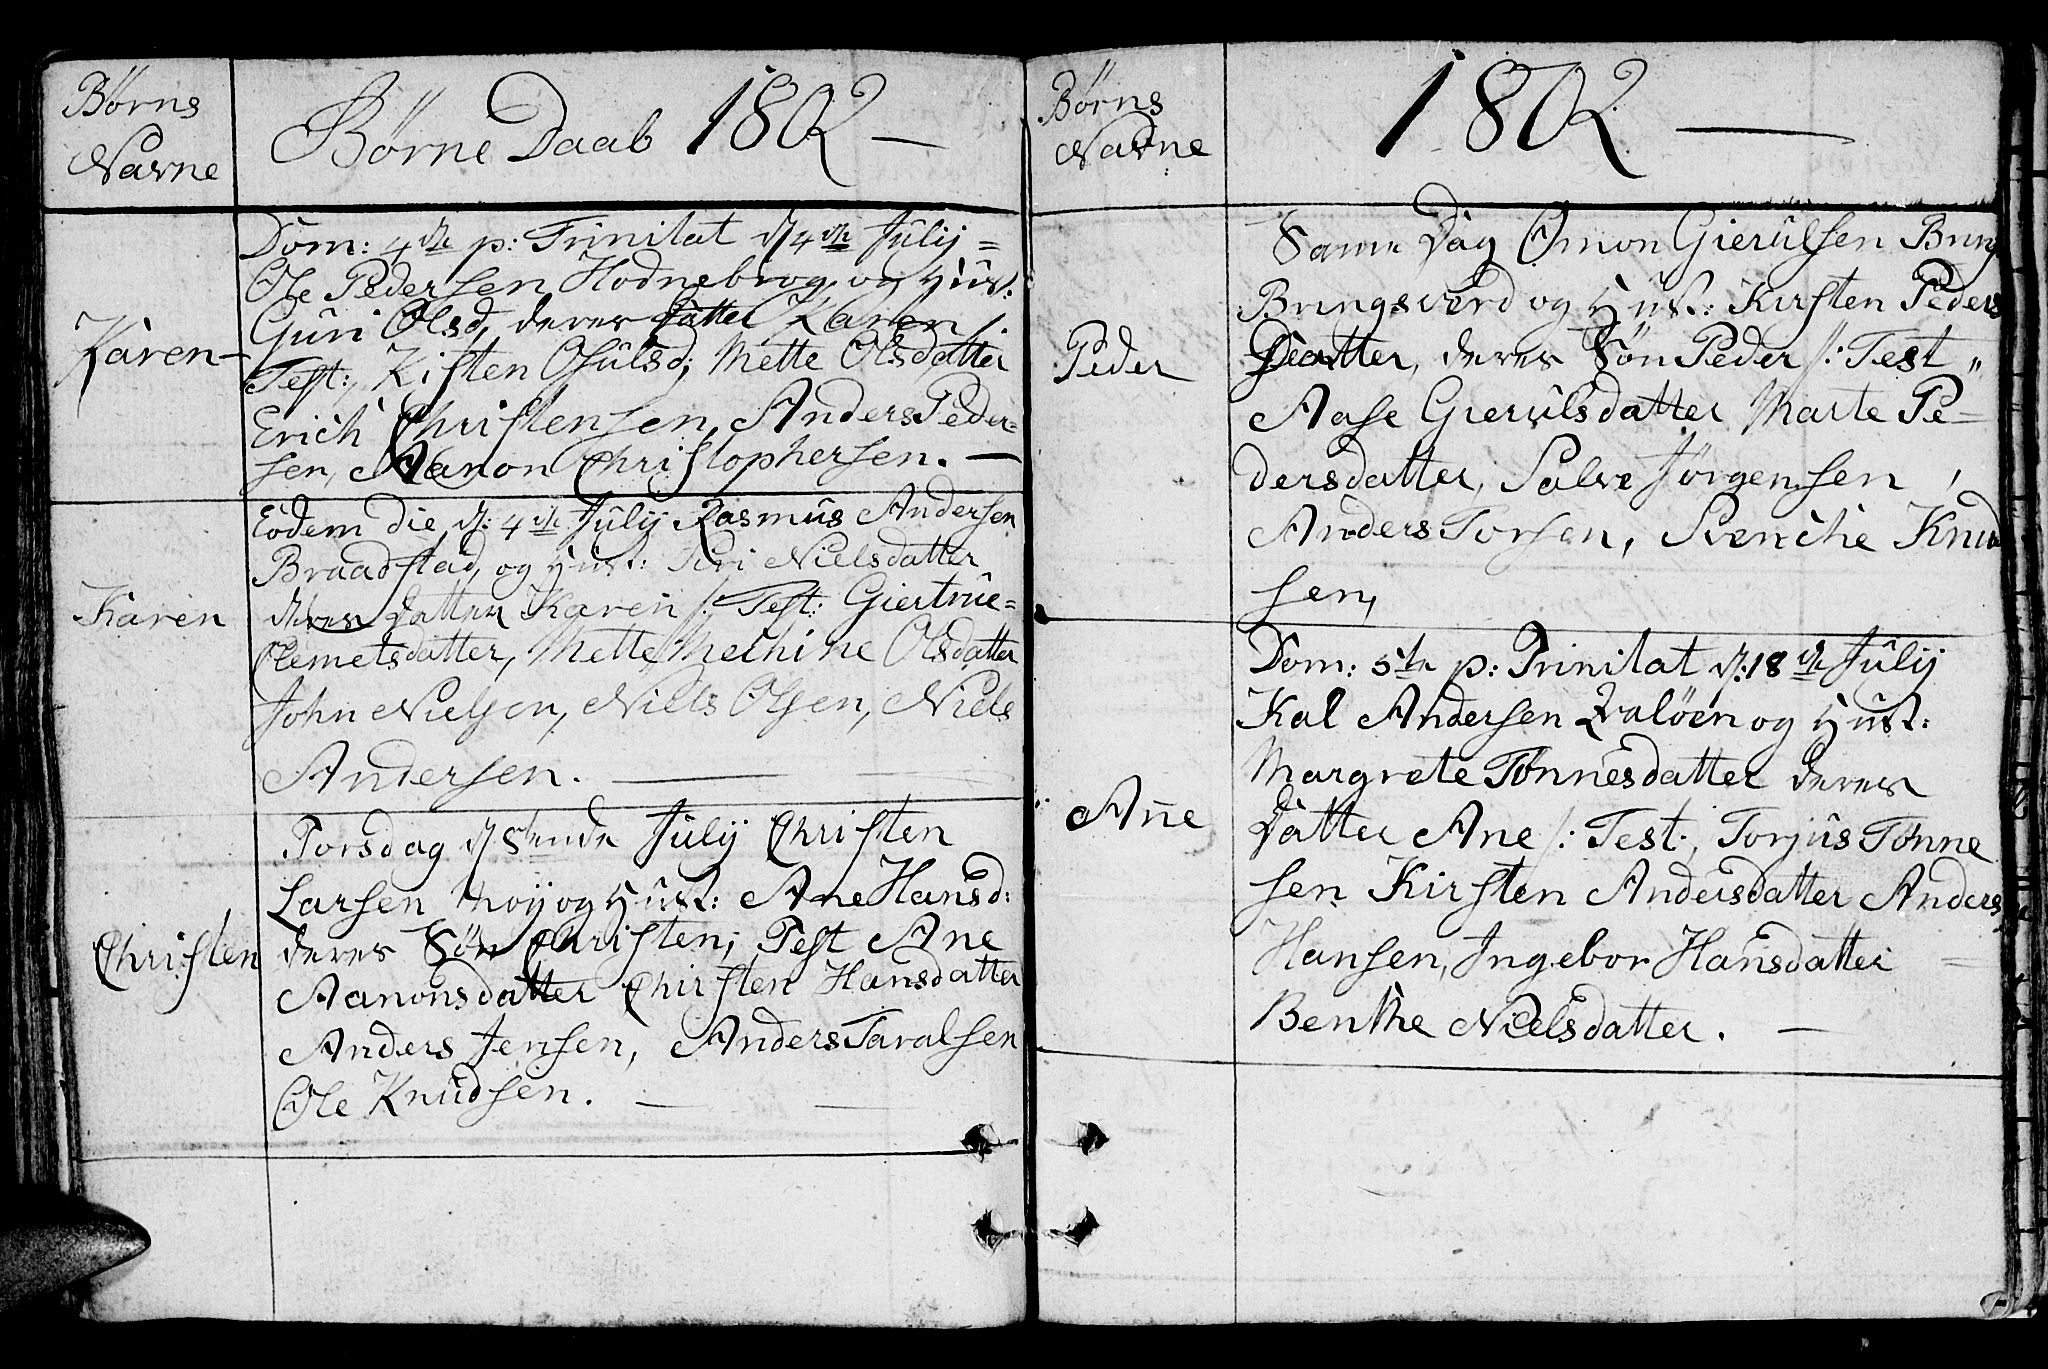 Børns
Navne
Børne Daab 1802 –
Karen –
Dom: 4de p: Trinitat d 4de Julij =
Ole Pedersen Hodnebrog og Hust:
Guri Olsd, deres Datter Karen /:
Test:, Kisten Osulsd; Mette Olsdatter
Erich Christensen, Anders Peder=
sen, Aanon Christophersen. —
Karen
Eodem die, d: 4de Julij Rasmus Andersen
Braadstad, og Hust: Siri Nielsdatter
deres Datter Karen /: Test: Giertrue=
Clemetsdatter, Mette Mechine Olsdatter
John Nielsen, Niels Olsen, Niels
Andersen. —
Christen
Torsdag d Julij Christen
Larsen Moy og Hust: Ane Hansd:
deres Søn Christen; Test Ane
Aanonsdatter Chirsten Hansdatter
Anders Jensen, Anders Taralsen
Ole Knudsen. —
Børns
Navne
1802 —
Peder
Samme Dag Omon Gierulsen Bring
Bringsverd og Hust: Kirsten Peders
Datter, deres Søn Peder /: Test „
Aase Gierulsdatter Marte Pe–
dersdatter, Salve Jørgensen,
Anders Torsen, Svenche Knud
sen,
Ane
Dom: 5te p: Trinitat d: 18de Julij
Kal Andersen Qvaløen og Hust:
Margrete Tønnesdatter deres
Datter Ane /: Test:, Torjus Tønne
sen Kirsten Andersdatter Anders
Hansen, Ingebor Hansdatter
Benthe Nielsdatter. —